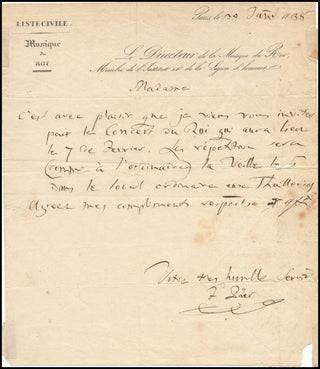 LISTE CIVILE.
Musique
du
ROI
Paris le 30 Janv 1838
Le Directeur de la Musique du Roi,
Membre de l'Institut et de la Légion d'honneur.
Madame
C'est avec plaisir que je viens vous inviter
pour le Concert du Roi qui aura lieu
le 7 de Fevrier. La répétition sera
(comme à l'ordinaire) la Veille le 6
dans le local ordinaire aux Thuileries
Agreer mes compliments
Votre tres humble Servit
F Paër